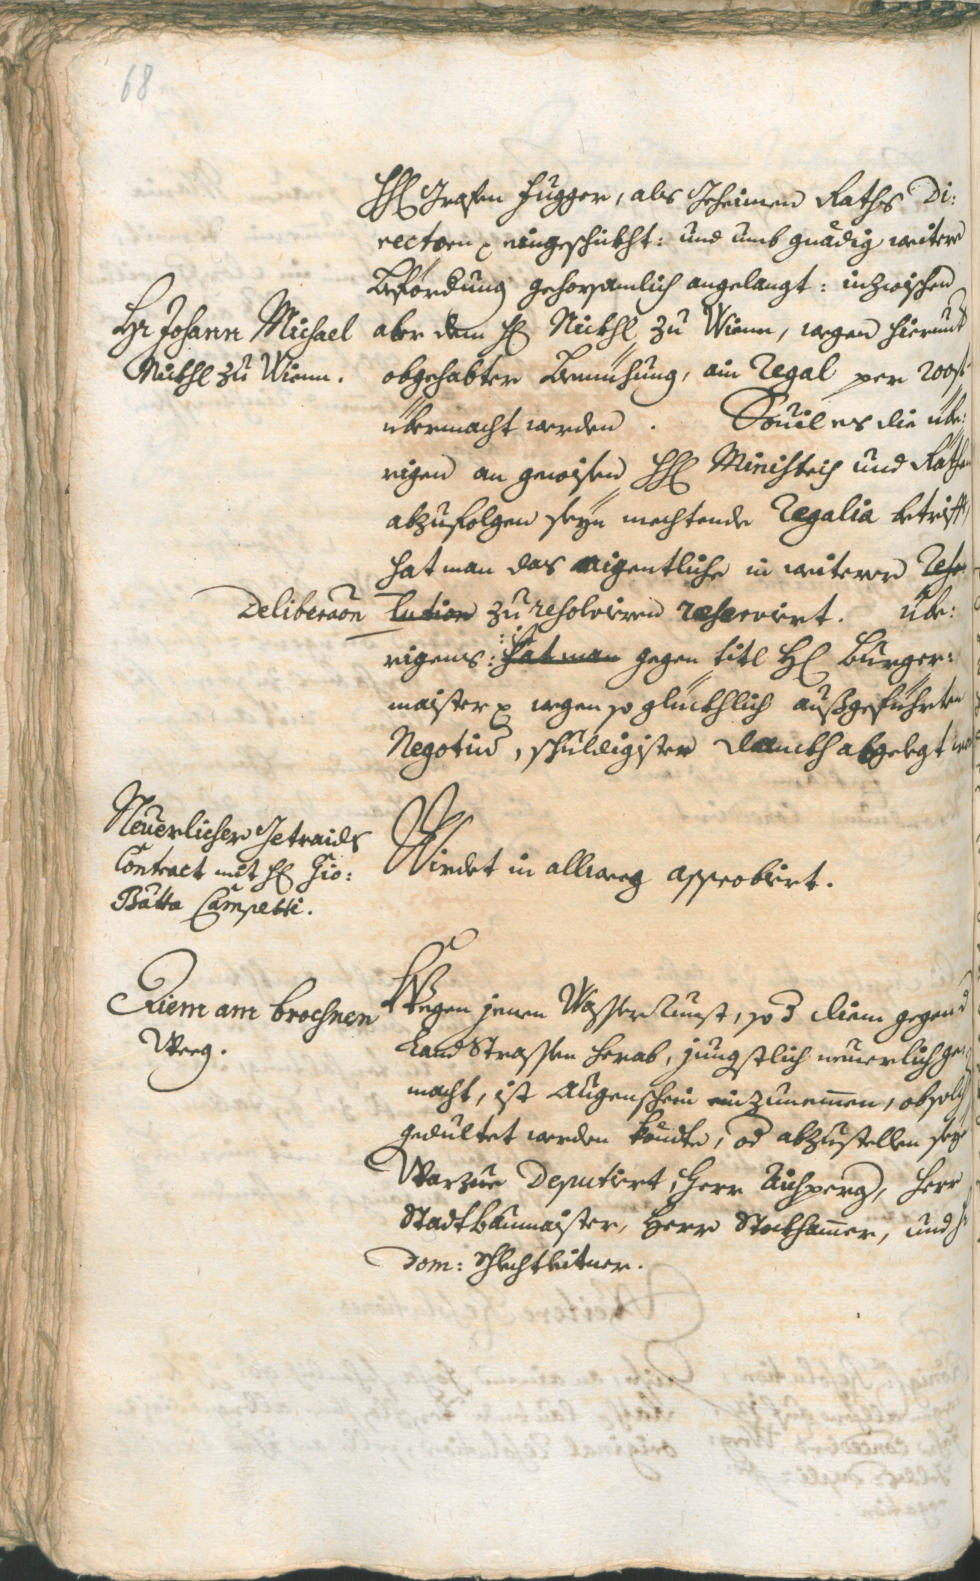 68
HH Grafen Fugger, als Geheimen Raths Di:
rectorn eingeschikht: und umb gnädig weitere
Beförderung gehorsamlich angelangt: inzwischen
Hr Johann Michael
Mickhl zu Wienn.
aber dem H Mickhl zu Wienn, wegen hierundt
obgehabter Bemühung, ain Regal per 200 f
übermacht werden. Souil es die übe:
rigen an gewisen HH Ministris und Räthe
abzufolgen seyn mechtende Regalia betrifft,
hat man das aigentliche in weiterer Reso
Deliberaõn lution zu resolviren reservirt. Übe:
rigens: ist hat man gegen titl H Burger:
maister wegen so glückhlich außgeführten
Negotio, schuldigister Danckh abgelegt
Neüerlicher Getraids
Contract mit H Gio:
Batta Campetti.
Wirdet in allweeg approbirt.
Riem am brochnen
Weeg.
Wegen jenen Wasser Runst, so d Riem gegen d
Landstrassen herab, jüngstlich neuerlich ge
macht, ist Augenschein einzunemmen, ob solch
gedultet werden könдte, od abzustellen sey
Warzue Deputiert, Herr Aichperg, Herr
Stadtbaumaister, Herr Stockhamer, und
Dom: Schlechtleitner.